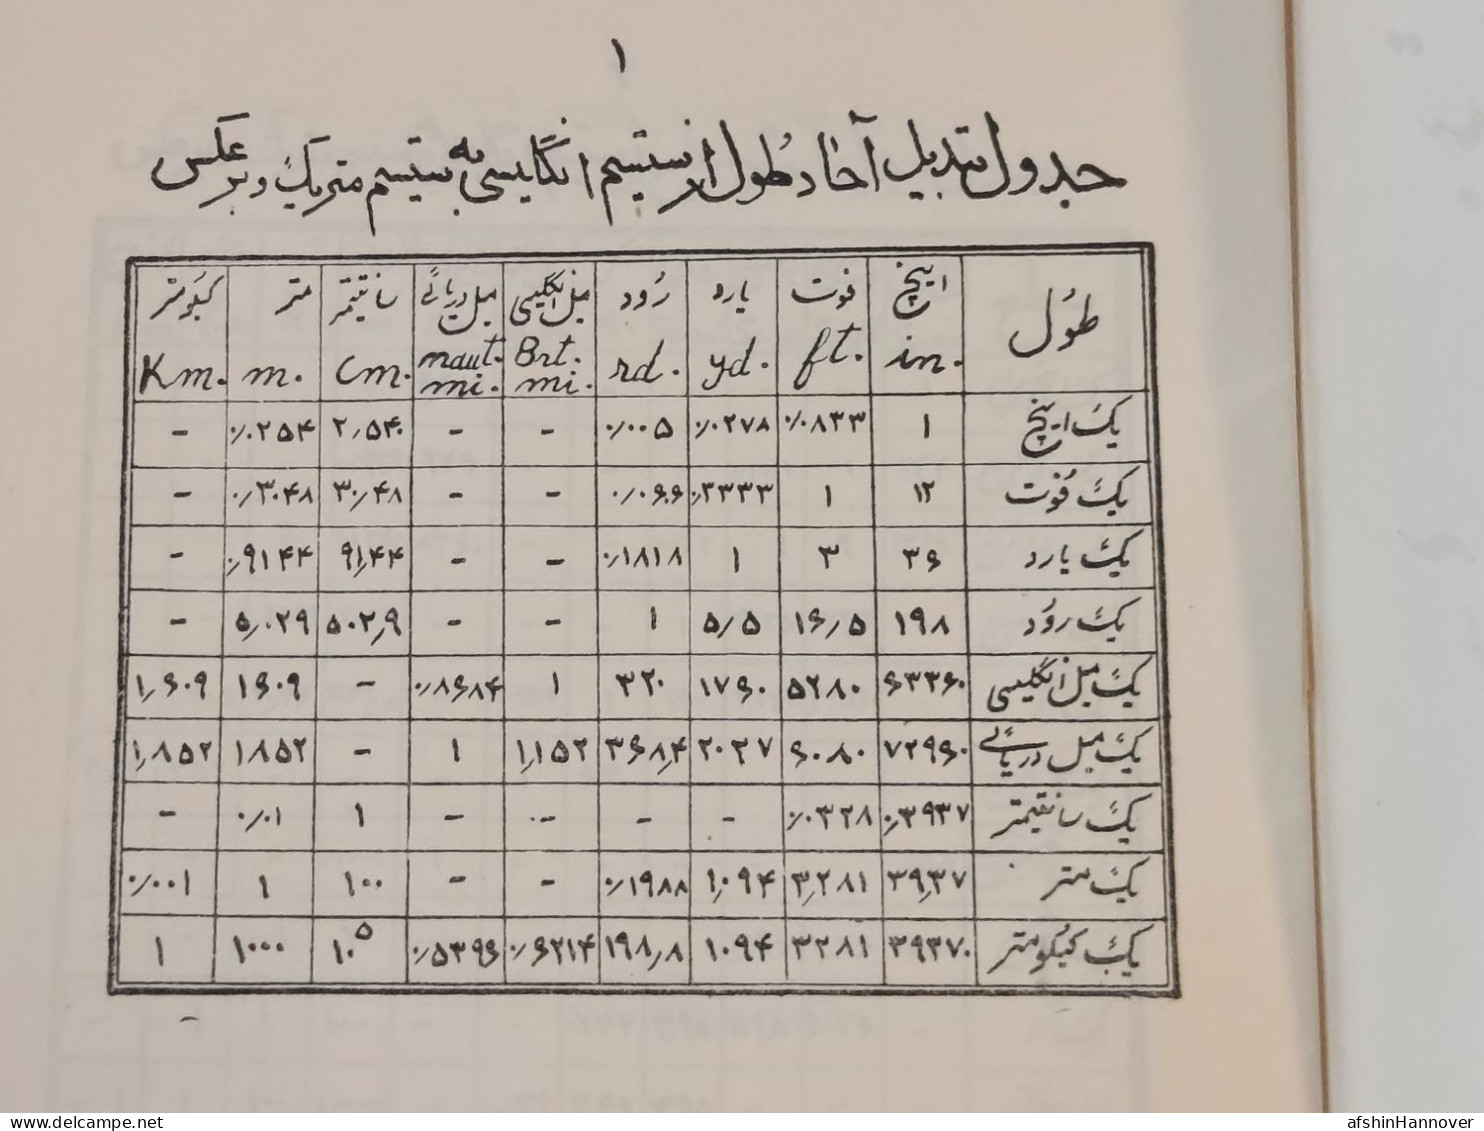 ۱
جدول تبدیل آحاد طول از سیستم انگلیسی به سیستم متریک و برعکس
طول اینچ فوت یارد رُود میل انگلیسی میل دریائی سانتیمتر متر کیلومتر
in. ft. yd. rd. Brt. mi. naut. mi. Cm. m. Km.
یک اینچ ۱ ۰/۰۸۳۳ ۰/۰۲۷۸ ۰/۰۰۵ - - ۲/۵۴۰ ۰/۰۲۵۴ -
یک فوت ۱۲ ۱ ۰/۳۳۳۳ ۰/۰۶۰۶ - - ۳۰/۴۸ ۰/۳۰۴۸ -
یک یارد ۳۶ ۳ ۱ ۰/۱۸۱۸ - - ۹۱/۴۴ ۰/۹۱۴۴ -
یک رُود ۱۹۸ ۱۶/۵ ۵/۵ ۱ - - ۵۰۲/۹ ۵/۰۲۹ -
یک میل انگلیسی ۶۳۳۶۰ ۵۲۸۰ ۱۷۶۰ ۳۲۰ ۱ ۰/۸۶۸۴ - ۱۶۰۹ ۱/۶۰۹
یک میل دریائی ۷۲۹۶۰ ۶۰۸۰ ۲۰۲۷ ۳۶۸/۴ ۱/۱۵۲ ۱ - ۱۸۵۲ ۱/۸۵۲
یک سانتیمتر ۰/۳۹۳۷ ۰/۰۳۲۸ - - - - ۱ ۰/۰۱ -
یک متر ۳۹/۳۷ ۳/۲۸۱ ۱/۰۹۴ ۰/۱۹۸۸ - - ۱۰۰ ۱ ۰/۰۰۱
یک کیلومتر ۳۹۳۷۰ ۳۲۸۱ ۱۰۹۴ ۱۹۸/۸ ۰/۶۲۱۴ ۰/۵۳۹۶ ۱۰⁵ ۱۰۰۰ ۱
www.delcampe.net
afshinHannover